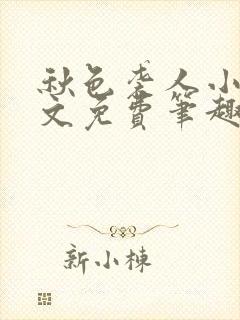 秋色李人小
文免費筆趣
新小棟